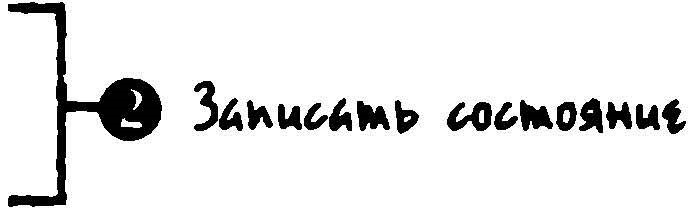 2 Записать состояние